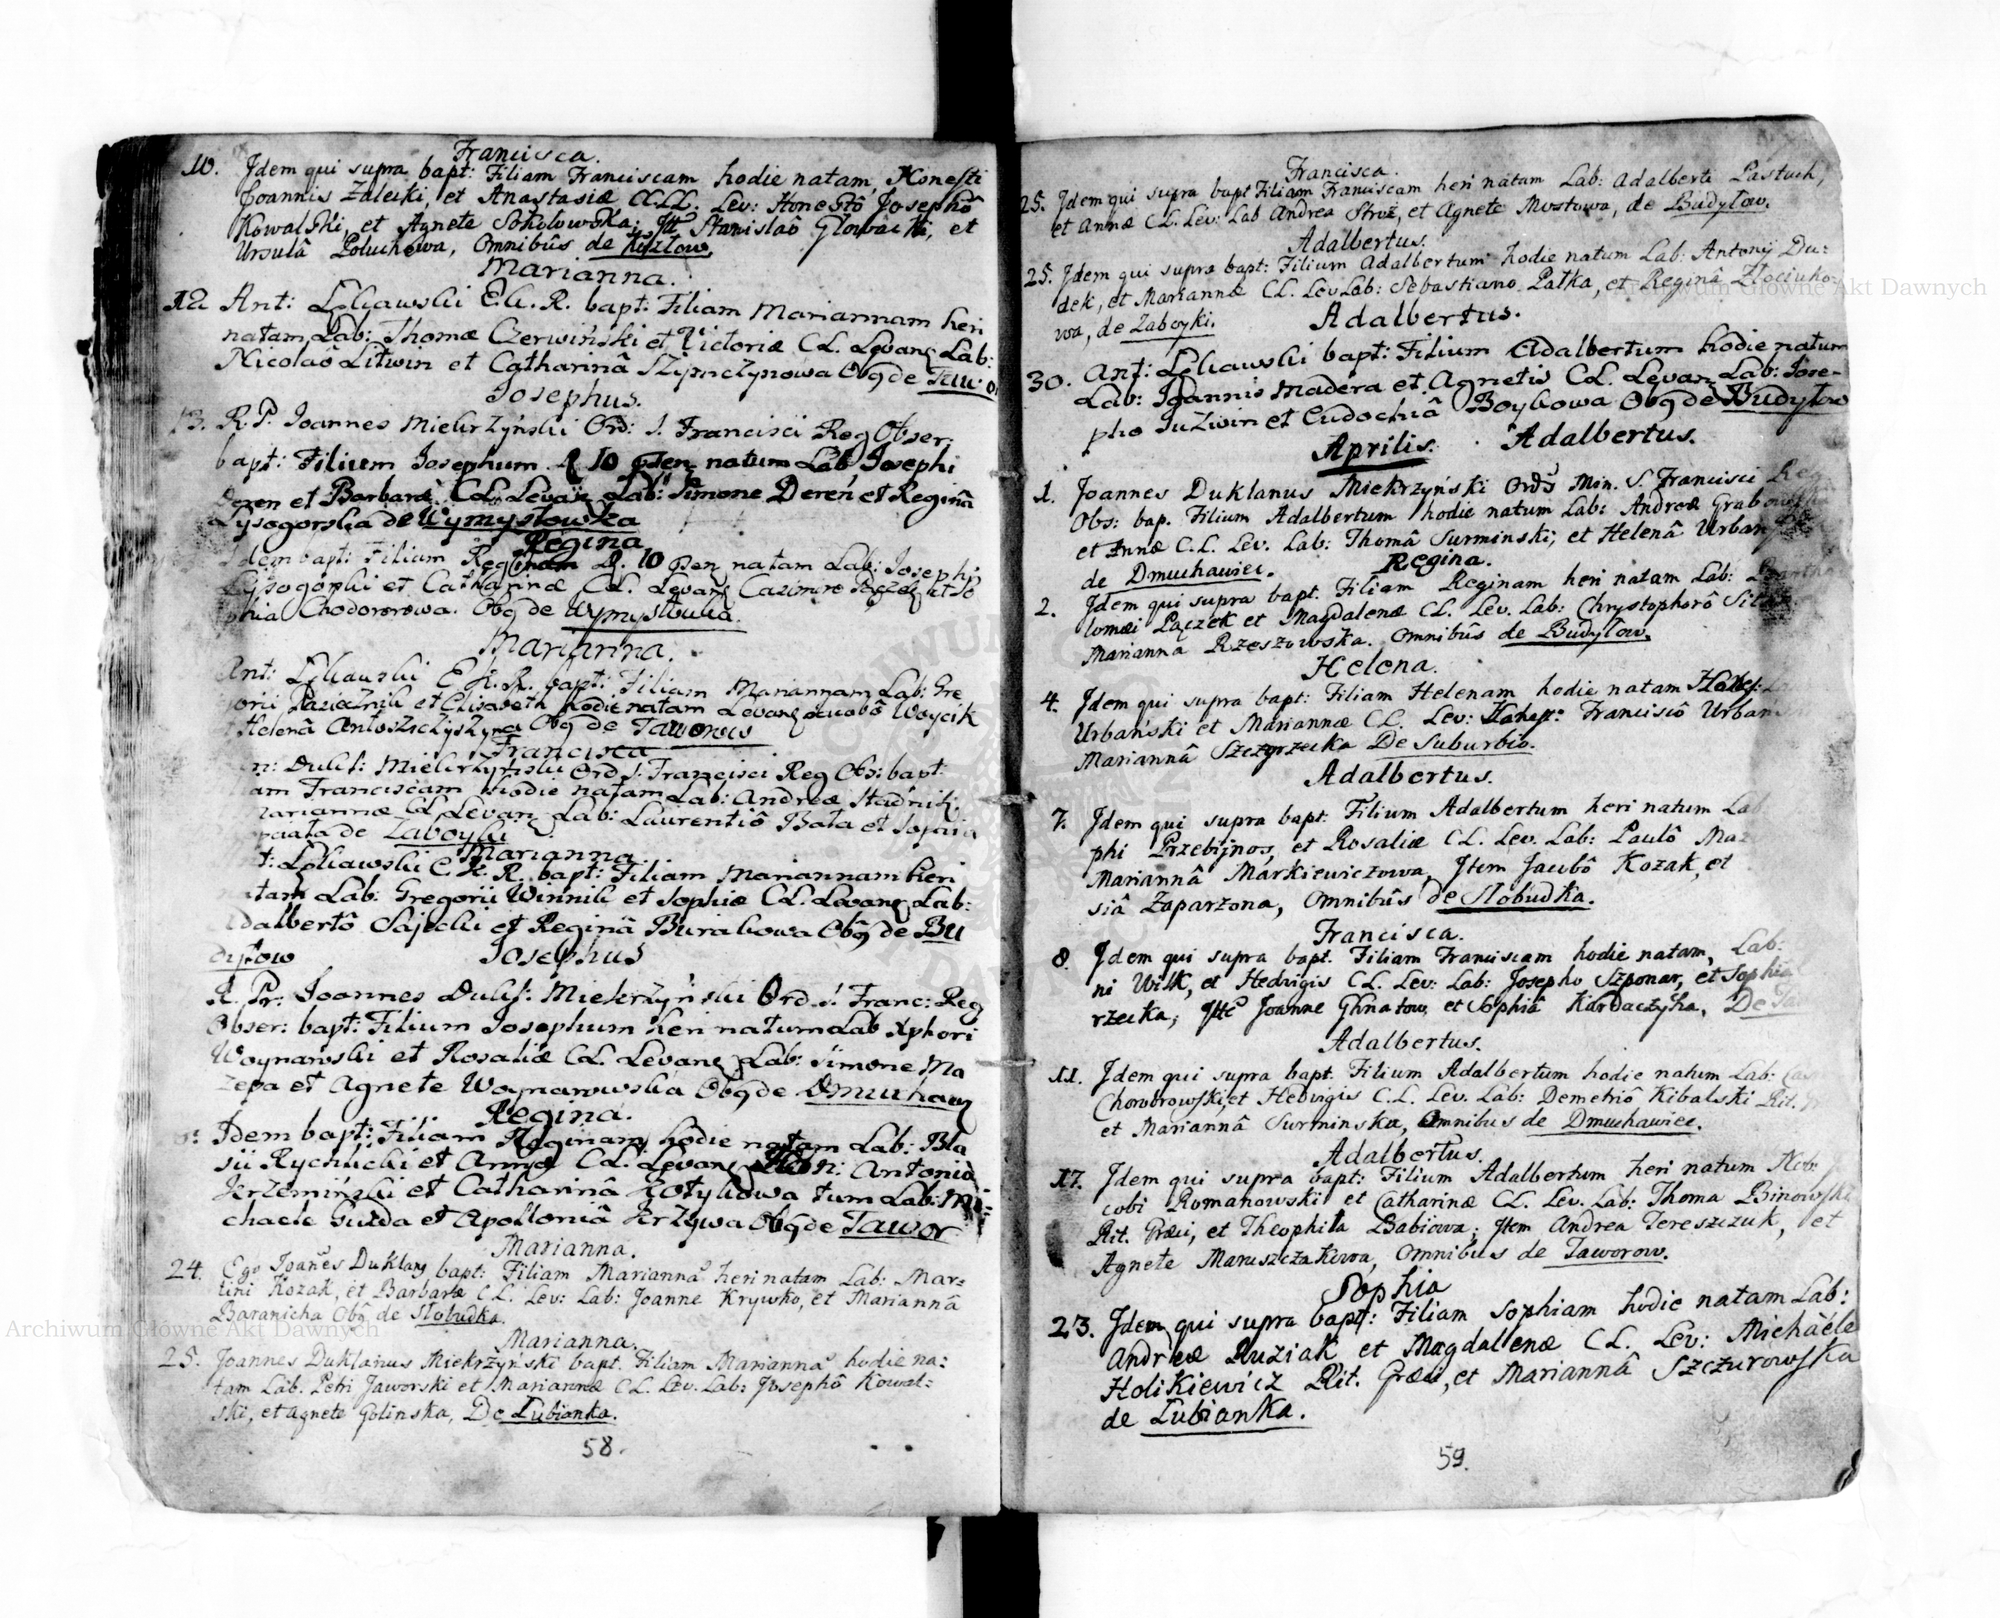 Francisca.
10. Jdem qui supra bapt: Filiam Franciscam hodie natam, Honesti
Joannis Zaleski, et Anastasiæ CLL. Lev: Honestô Josephô
Kowalski, et Agnete Sokołowska; Jtt Stanislaô Głowacki, et
Ursulâ Poluchowa, Omnibûs de Kozłow.
Marianna.
12 Ant: bapt: Filiam Mariannam heri
natam Lab: Thomæ Czerwiński et Victoriæ CL. Levanę Lab:
Nicolaô Litwin et Catharinâ Szymczynowa Obq de
Josephus.
13. R. P. Joannes Miekrzyński Ord: S. Francisci Reg Obser:
bapt: Filium Josephum d. 10 psen natum Lab Josephi
Deren et Barbaræ CL. Levan Lab: Simone Dereń et Reginâ
Lysogorska de Wymysłowka
Regina
Jdem bapt: Filiam Reginam D. 10 psen natam Lab: Josephi
Lysogorski et Catharinæ CL. Levanę Casimiro et So
phia Chodorowa. Obq de Wymysłowka.
Marianna.
Ant: E. K. R. bapt: Filiam Mariannam Lab: Gre
gorii Pasiecznik et Elisabeth hodie natam Levanę Jacobô Woycik
Helenâ Antoszczyszyna Obq de Taworow
Francisca
Dukl: Miekrzyński Ord S. Francisci Reg Obs: bapt.
iam Franciscam hodie natam Lab: Andreæ Stadnik
Mariannæ CL Levanę Lab: Laurentiô Bata et Sophia
de Zaboyki
Marianna.
t: E. K. R. bapt: Filiam Mariannam heri
natam Lab: Gregorii Winnik et Sophiæ CL. Levanę Lab:
Adalbertô Sajecki et Reginâ Burakowa Obq de Bu
dyłow
Josephus
R. Pr: Joannes Dukl: Miekrzyński Ord. S. Franc: Reg
Obser: bapt: Filium Josephum heri natum Lab Xphori
Woynarowski et Rosaliæ CL. Levanę Lab: Simone Ma
zepa et Agnete Woynarowska Obq de Dmuchawę
Regina.
Jdem bapt: Filiam Reginam hodie natam Lab: Bla
sii Rychlicki et Annæ CL. Levanę Hon: Antonio
Jerzemiński et Catharinâ Kotykowa tum Lab: Mi=
chaele Guzda et Apolloniâ Jerżywa Obq de Tawor
Marianna.
24. Ego Joañes Duklanę bapt: Filiam Mariannã heri natam Lab: Mar=
tini Kozak, et Barbaræ CL. Lev: Lab: Joanne Krywko, et Mariannâ
Baranicha Obq de Słobudka.
Marianna.
25. Joannes Duklanus Miekrzyński bapt. Filiam Mariannã hodie na=
tam Lab. Petri Jaworski et Mariannæ CL. Lev. Lab: Josephô Kowal=
ski, et Agnete Golinska, De Łubianka.
58.
Francisca.
25. Jdem qui supra bapt Filiam Franciscam heri natam Lab: Adalberti Pastuch,
et Annæ CL. Lev: Lab Andrea Struż, et Agnete Mostowa, de Budyłow.
Adalbertus.
25. Jdem qui supra bapt: Filium Adalbertum hodie natum Lab: Antonij Du:
dek, et Mariannæ CL. Lev Lab: Sebastiano Pałka, et Reginâ
wa, de Zaboyki.
Adalbertus.
30. Ant: bapt: Filium Adalbertum hodie natum
Lab: Joannis Madera et Agnetis CL. Levanę Lab: Jose-
pho Juzwin et Eudochiâ Boykowa Obq de Budyłow
Aprilis. Adalbertus.
1. Joannes Duklanus Miekrzyński Ord: Min. S. Francisci Reg
Obs: bap. Filium Adalbertum hodie natum Lab: Andreæ
et Annæ C.L. Lev. Lab: Thomâ Surminski; et Helenâ
de Dmuchawiec.
Regina.
2. Jdem qui supra bapt. Filiam Reginam heri natam Lab: Bartho
lomæi Pączek et Magdalenæ CL. Lev. Lab: Chrystophorô
Marianna Rzeszowska. Omnibûs de Budyłow.
Helena.
4. Jdem qui supra bapt: Filiam Helenam hodie natam
Urbański et Mariannæ CL. Lev: Francisiô
Mariannâ Szczyrzecka De Suburbio.
Adalbertus.
7. Jdem qui supra bapt: Filium Adalbertum heri natum Lab
phi Przebijnos, et Rosaliæ CL. Lev. Lab: Paulô
Mariannâ Markiewiczowa, Jtem Jacobô Kozak, et
siâ Zaparzona, Omnibûs de Słobudka.
Francisca.
8. Jdem qui supra bapt. Filiam Franciscam hodie natam, Lab:
ni Wilk, et Hedvigis CL. Lev: Lab: Josepho Szponar, et Sophia
rzecka; Jtt Joanne Ghnatow, et Sophiâ Kardaczyka, De
Adalbertus.
11. Jdem qui supra bapt. Filium Adalbertum hodie natum Lab:
Choworowski, et Hedvigis C.L. Lev. Lab: Demetriô Kibalski Rit.
et Mariannâ Surminska, Omnibus de Dmuchawiec.
Adalbertus.
17. Jdem qui supra bapt: Filium Adalbertum heri natum
cobi Romanowski et Catharinæ CL. Lev. Lab: Thoma
Rit. Græci, et Theophila Babiowa; Jtem Andrea Tereszczuk, et
Agnete Maruszczakowa, Omnibus de Taworow.
Sophia
23. Jdem qui supra bapt: Filiam Sophiam hodie natam Lab:
Andreæ Ruziak et Magdallenæ CL. Lev: Michaële
Holikiewicz Rit. Græci, et Mariannâ Szczurowska
de Łubianka.
59.
Archiwum Główne Akt Dawnych
Archiwum Główne Akt Dawnych